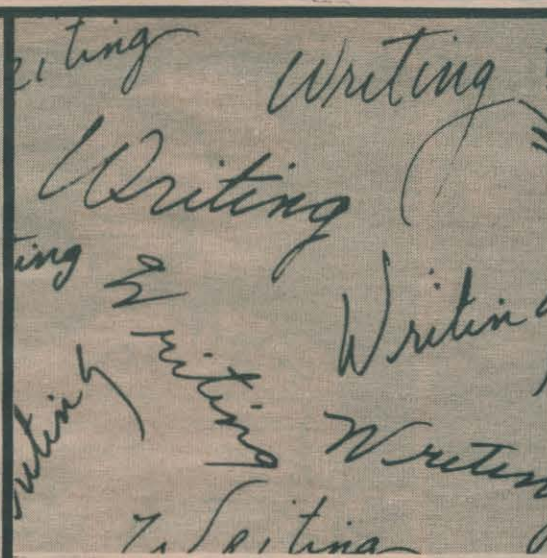 iting
Writing
Writing
ing
Writing
Writin
riting
Writin
Writing